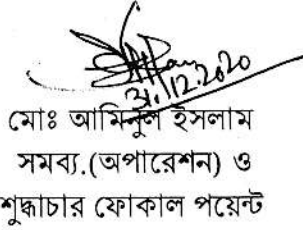 31.12.2020
মোঃ আমিনুল ইসলাম
সমব্য.(অপারেশন) ও
শুদ্ধাচার ফোকাল পয়েন্ট